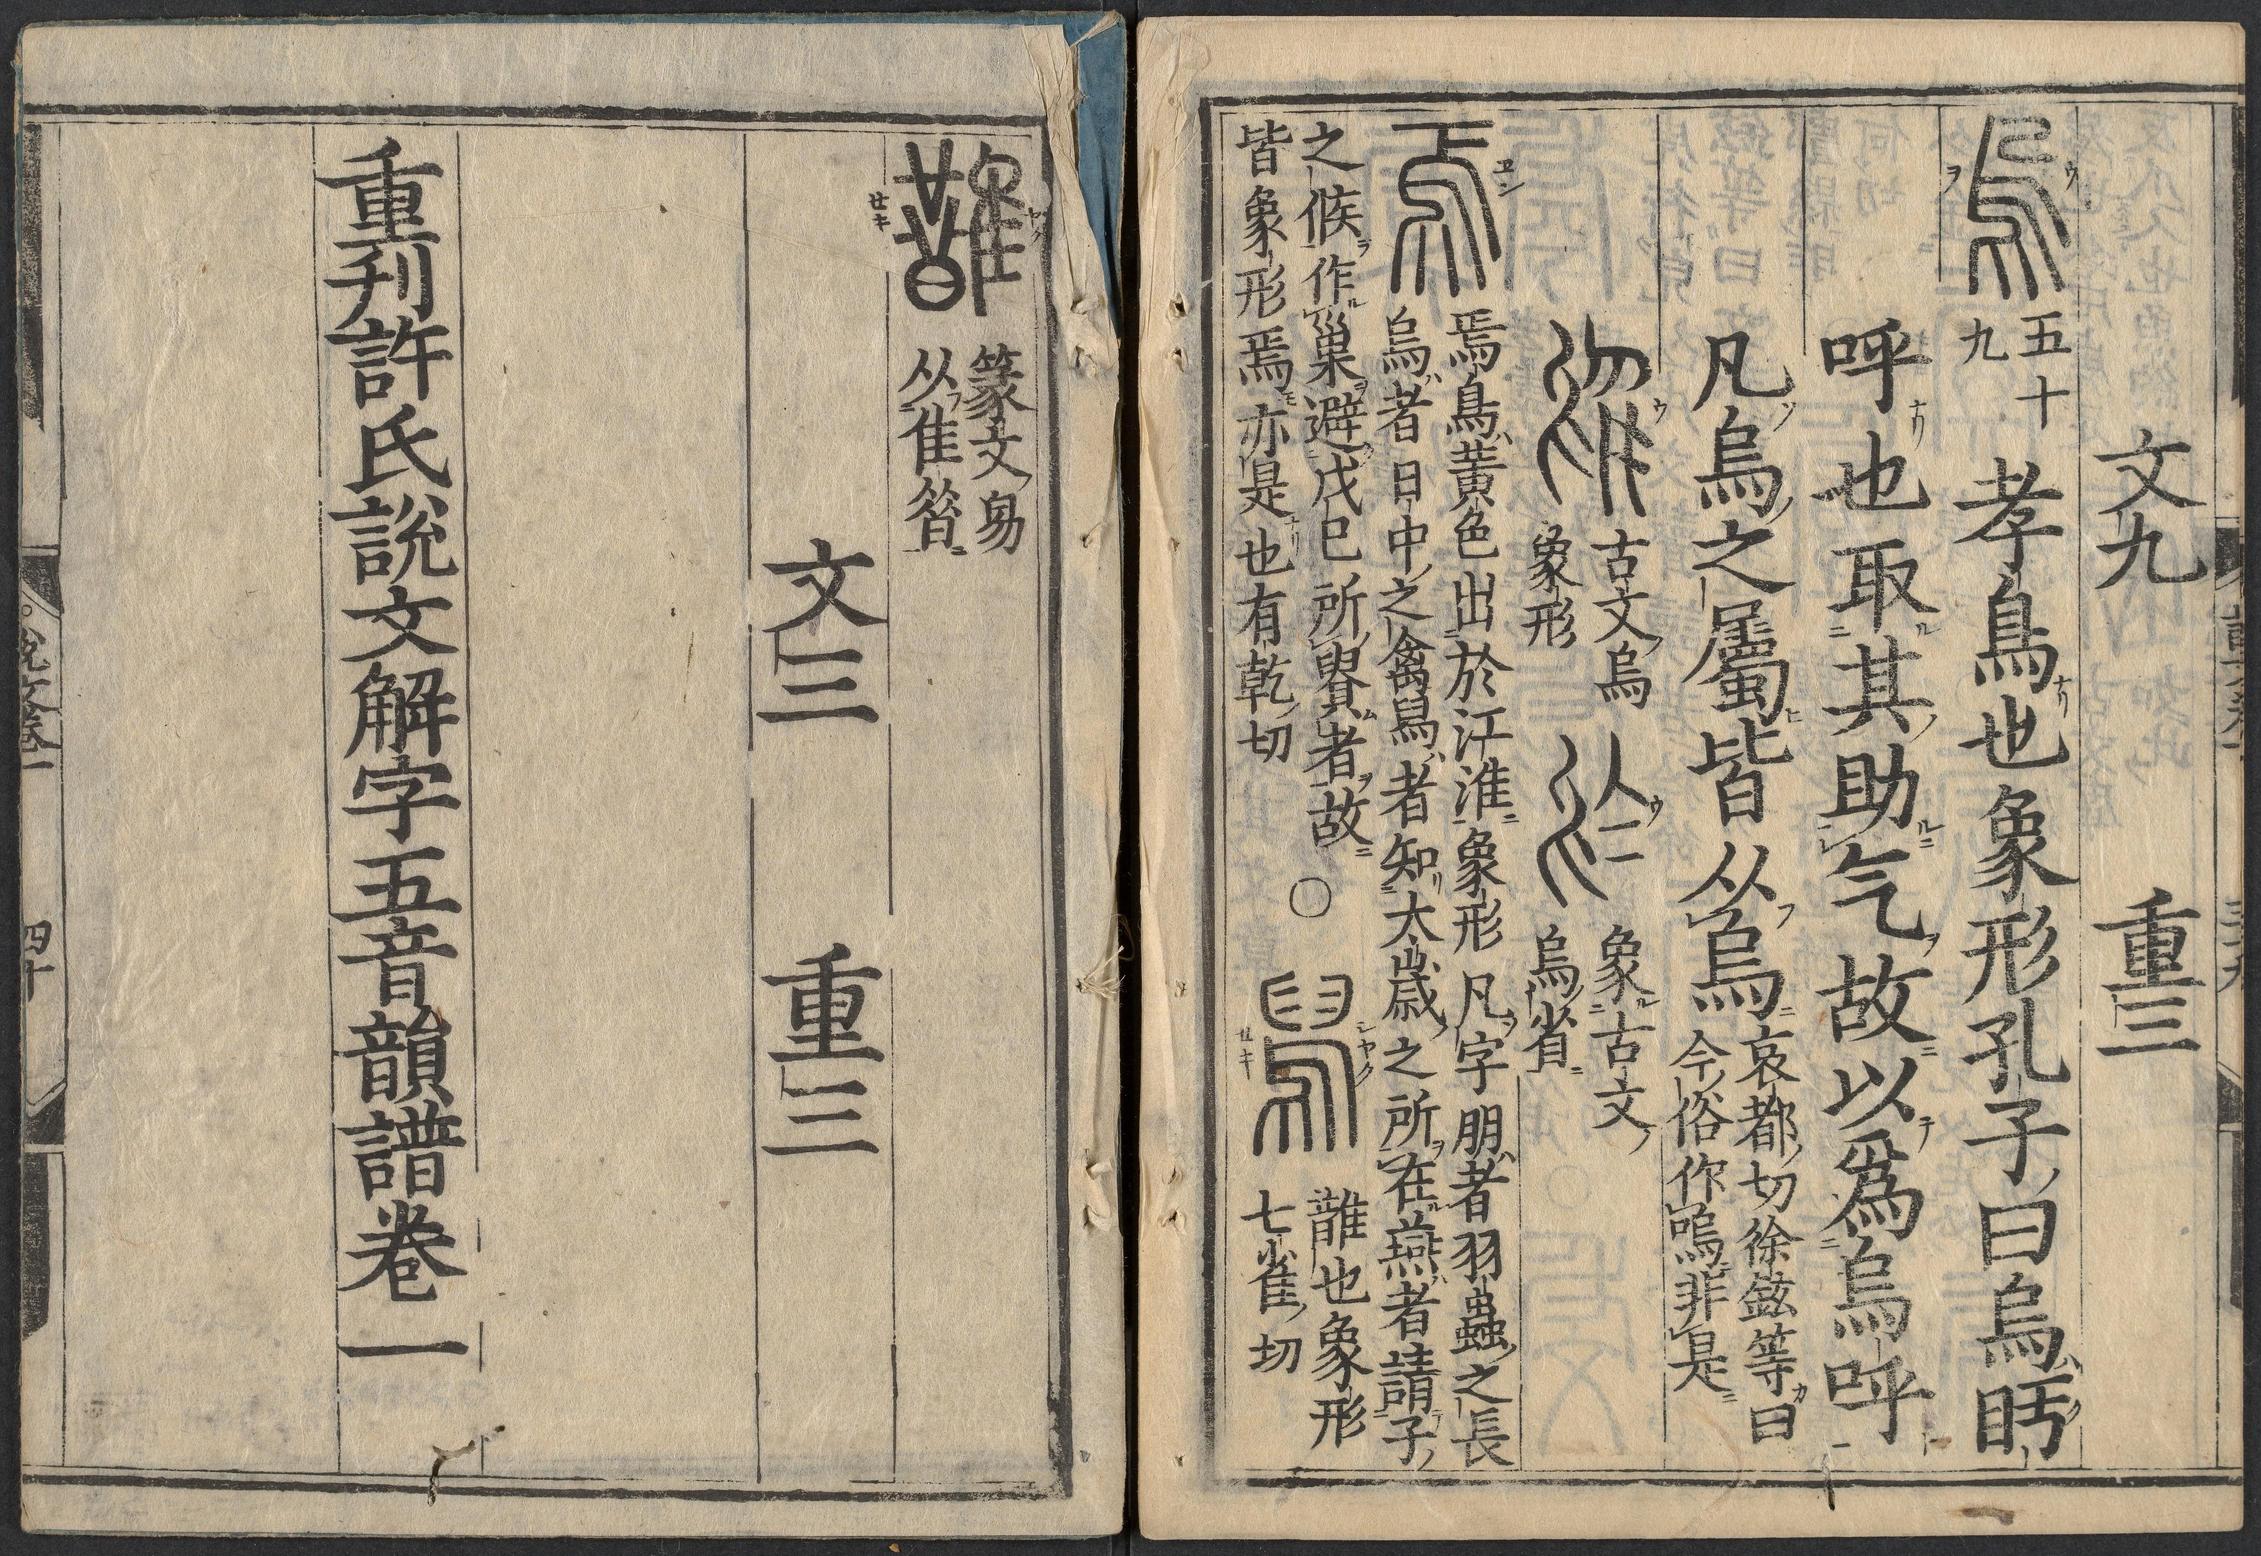 文九 重三
烏 五十九 孝鳥也象形孔子曰烏盱
呼也取其助气故以爲烏呼
凡烏之屬皆从烏 哀都切徐鉉等曰
今俗作嗚非是
古文烏
象形
象古文
烏省
焉 焉鳥黃色出於江淮象形凡字朋者羽蟲之長
烏者日中之禽舄者知太歲之所在燕者請子
之候作巢避戊巳所貴者故
皆象形焉亦是也有乾切
○舄 䧿也象形
七雀切
篆文舄
从隹㫺
文三 重三
重刊許氏說文解字五音韻譜卷一
說文卷一 四十